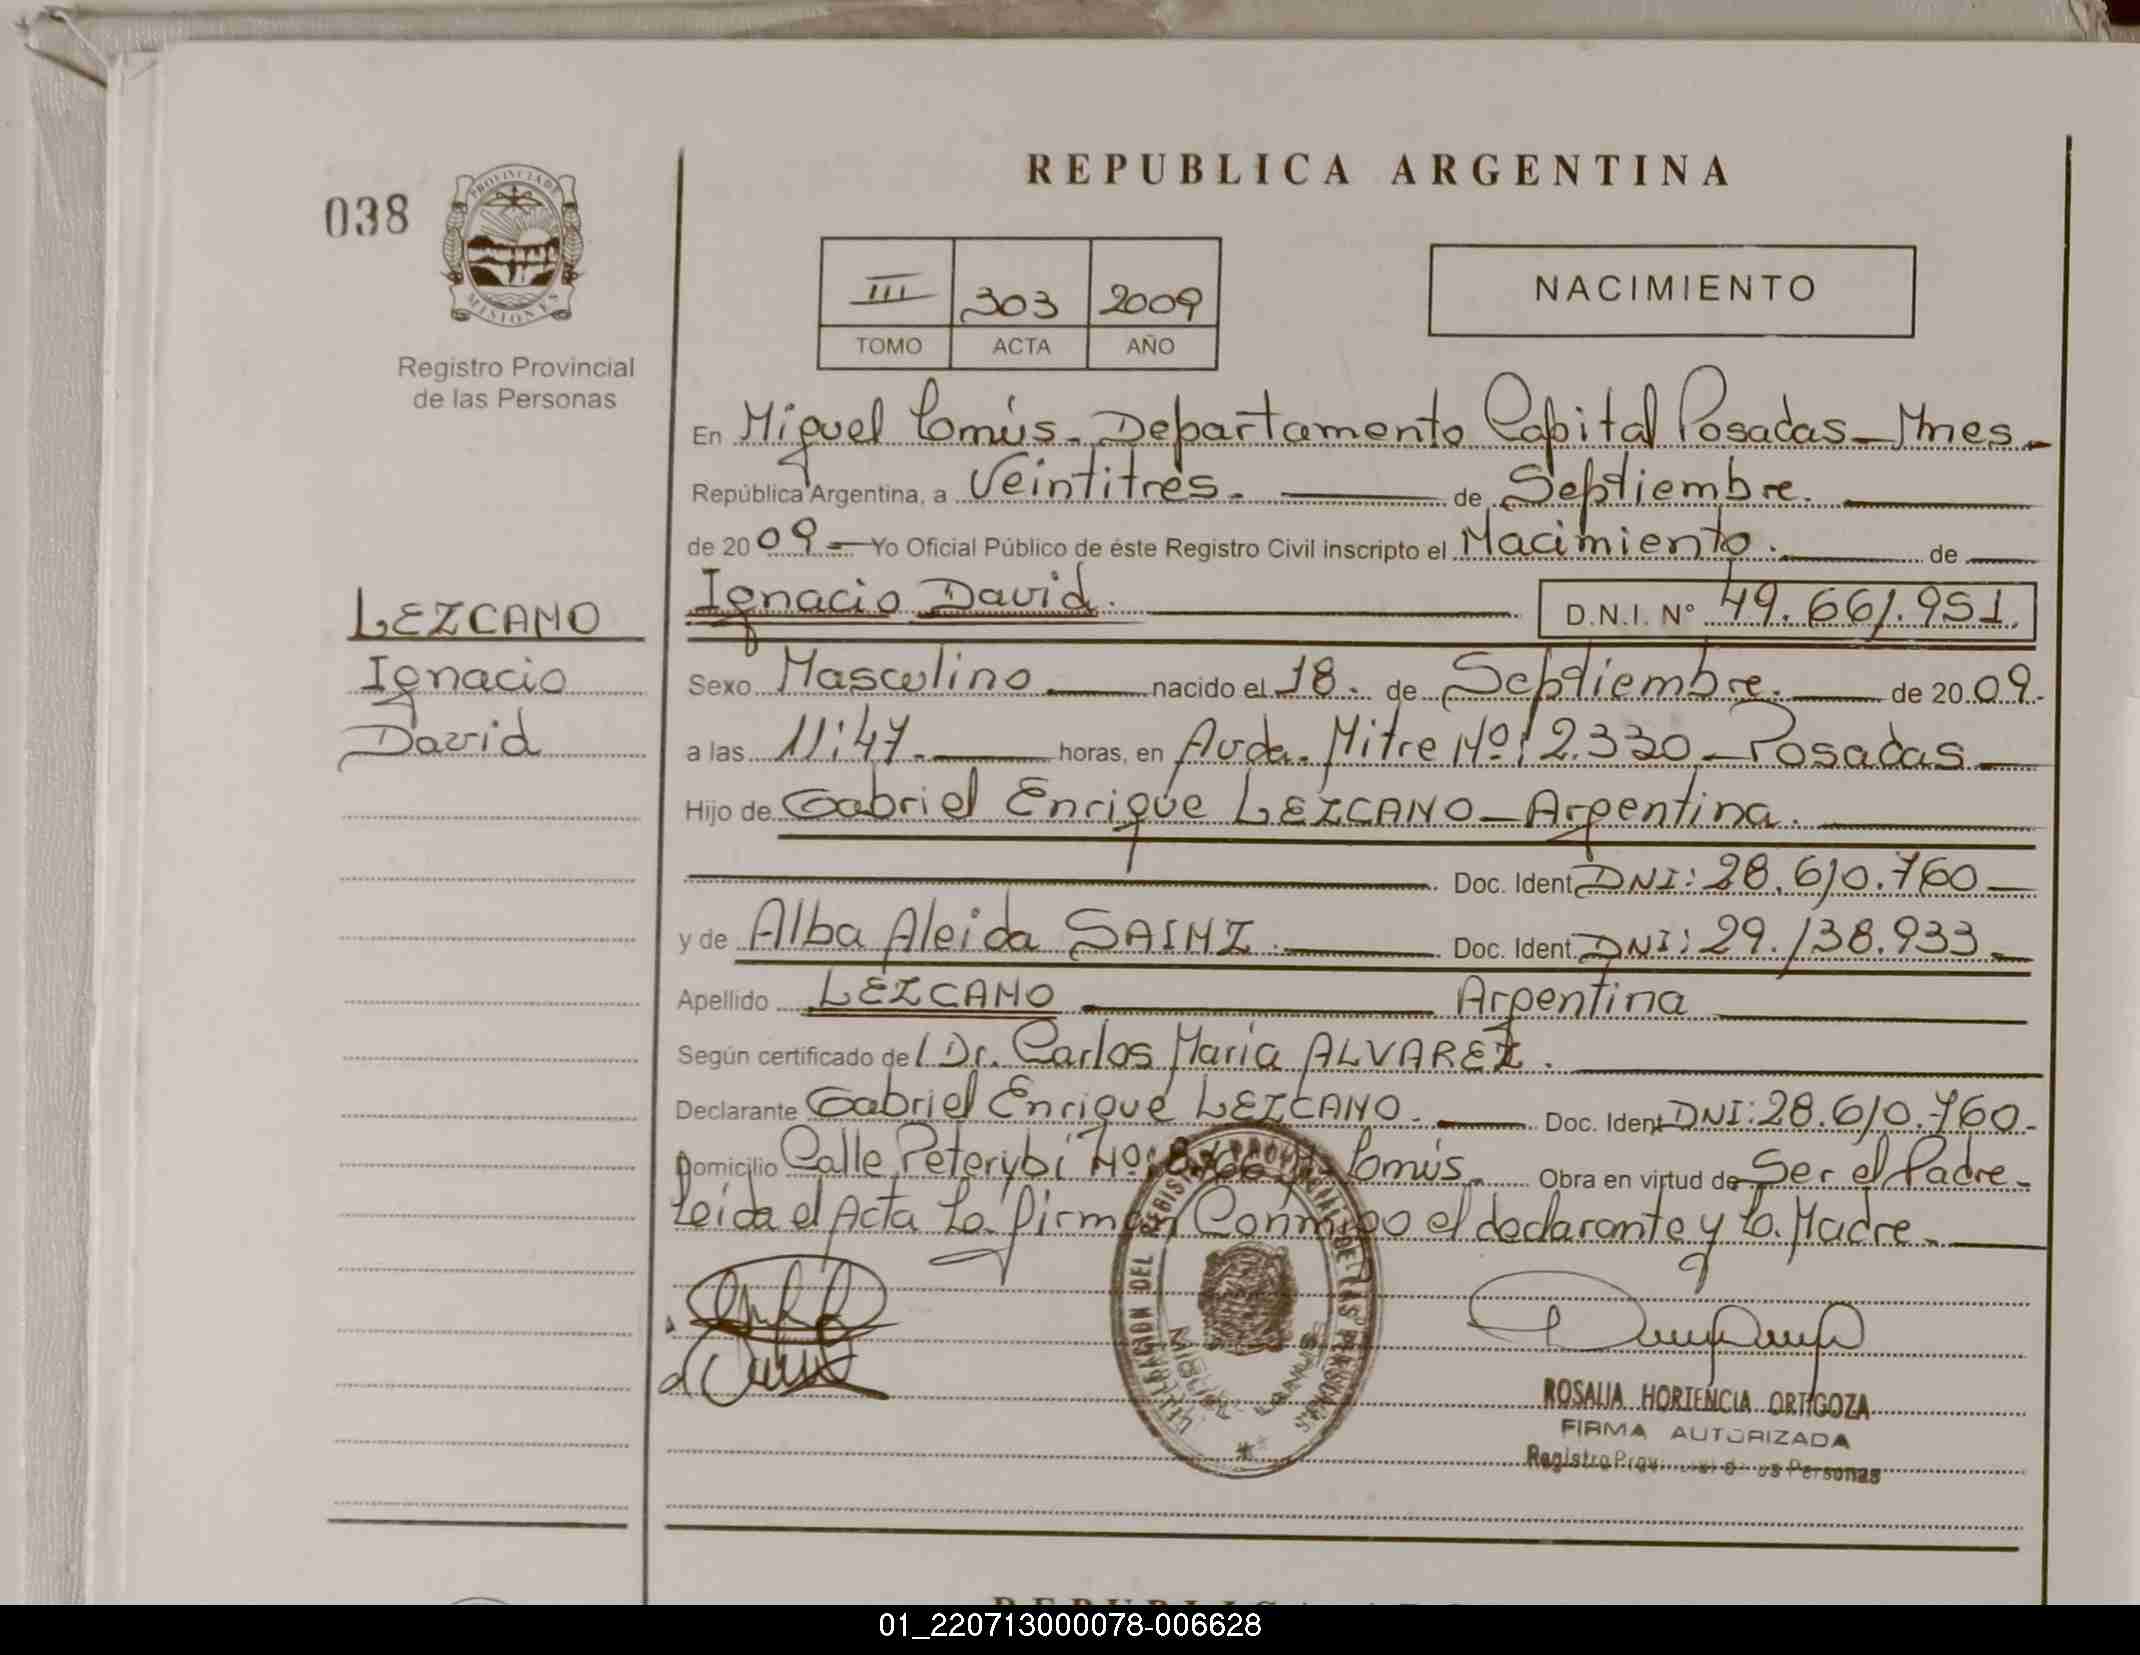 REPUBLICA ARGENTINA
038
PROVINCIA DE
MISIONES
Registro Provincial
de las Personas
III 303 2009
TOMO ACTA AÑO
NACIMIENTO
En Miguel Lanús - Departamento Capital Posadas - Mnes -
República Argentina, a Veintitrés - de Septiembre.
de 2009 - Yo Oficial Público de éste Registro Civil inscripto el Nacimiento. de
LEZCANO
Ignacio
David
Ignacio David. D.N.I. N° 49.661.951.
Sexo Masculino nacido el 18. de Septiembre. de 2009.
a las 11:47. horas, en Avda. Mitre Nº: 2.330 - Posadas
Hijo de Gabriel Enrique LEZCANO - Argentina.
Doc. Ident. DNI: 28.610.760
y de Alba Aleida SAINZ. Doc. Ident. DNI: 29.138.933
Apellido LEZCANO Argentina
Según certificado de Dr. Carlos María ALVAREZ.
Declarante Gabriel Enrique LEZCANO. Doc. Ident DNI: 28.610.760
Domicilio Calle Peterybí Nº: Lanús. Obra en virtud de Ser el Padre.
Leída el Acta La firman Conmigo el declarante y la Madre.
DEL REGISTRO PROVINCIAL DE LAS PERSONAS
ROSALIA HORTENCIA ORTIGOZA
FIRMA AUTORIZADA
Registro Provincial de las Personas
01_220713000078-006628